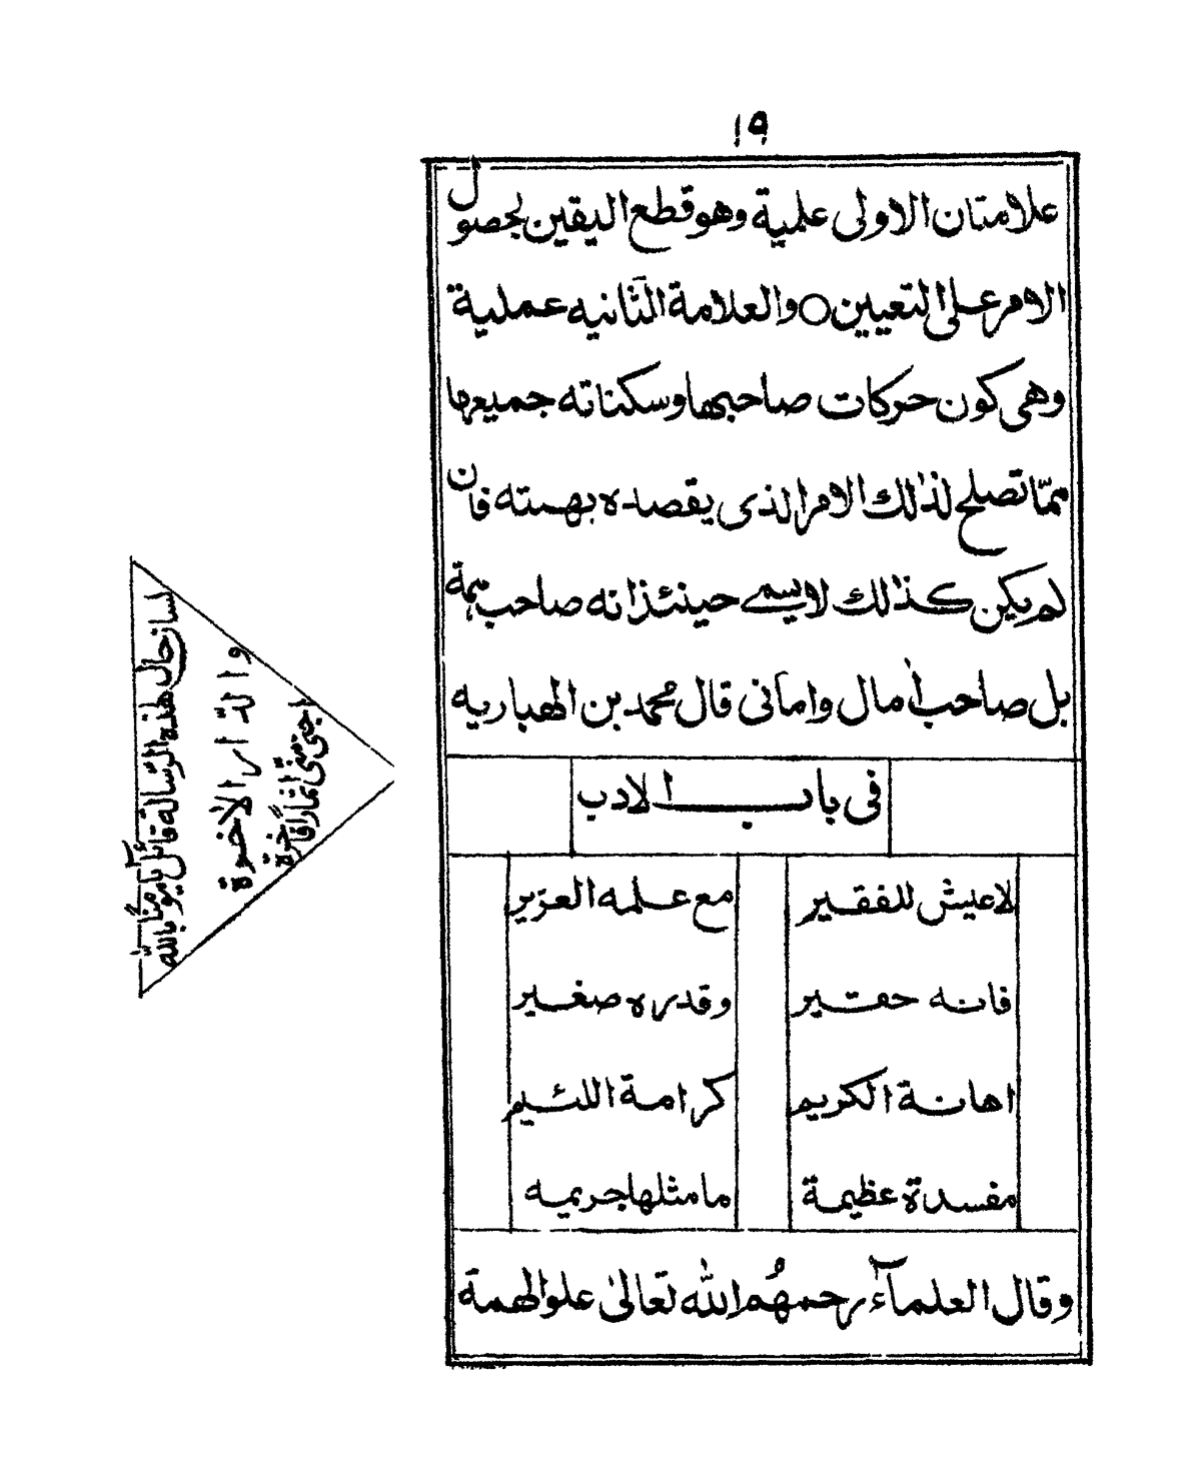 ١٩
علامتان الاولى علمية وهو قطع اليقين بحصول
الامر على التعيين ○ والعلامة الثانيه عملية
وهى كون حركات صاحبها وسكناته جميعها
ممّا تصلح لذلك الامر الذى يقصده بهمته فان
لم يكن كذلك لا يسمى حينئذ انه صاحب همة
بل صاحب اٰمال وامانى قال محمد بن الهباريه
فى باب الادب
لا عيش للفقير مع علمه العزير
فانه حقير وقدره صغير
اهانة الكريم كرامة اللئيم
مفسدة عظيمة ما مثلها جريمه
وقال العلمآء رحمهُم الله تعالىٰ علو الهمة
لسان حال هٰذه الرّسالة قائل يا مؤمنًا بالله
والدّار الاٰخرة
اجتنى منّى اثمارًا فاخرة